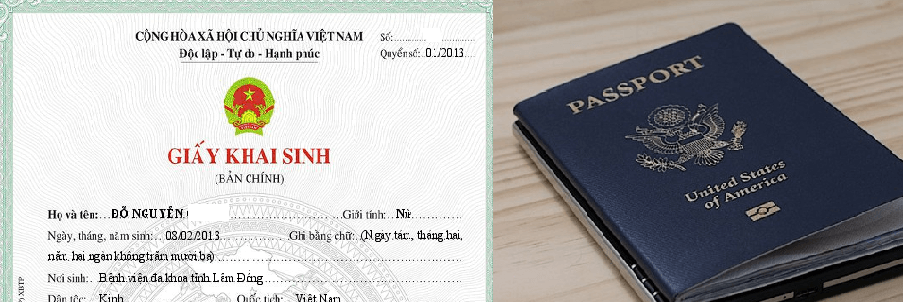 CỘNG HÒA XÃ HỘI CHỦ NGHĨA VIỆT NAM
Độc lập - Tự do - Hạnh phúc
Số:
Quyển số: 01/2013
GIẤY KHAI SINH
(BẢN CHÍNH)
Họ và tên: ĐỖ NGUYÊN Giới tính: Nữ
Ngày, tháng, năm sinh: 08/02/2013 Ghi bằng chữ: (Ngày tám, tháng hai,
năm hai ngàn không trăm mười ba)
Nơi sinh: Bệnh viện đa khoa tỉnh Lâm Đồng
Dân tộc: Kinh Quốc tịch: Việt Nam
PASSPORT
United States
of America